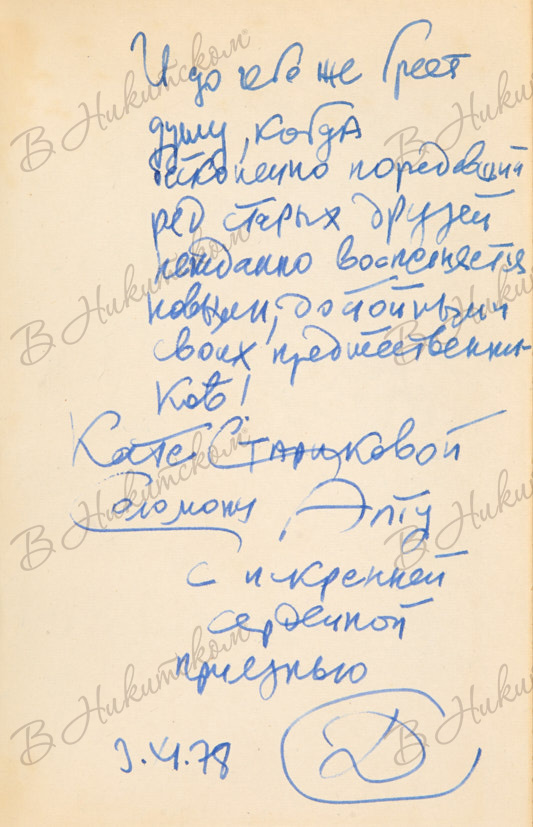 И до чего же греет
душу, когда
бесконечно поредевший
ряд старых друзей
нежданно восполняется
новыми, достойными
своих предшественни-
ков!
Кате Старшковой
Соломону Апту
с искренней
сердечной
приязнью
3.XI.78
Д
В Никитском